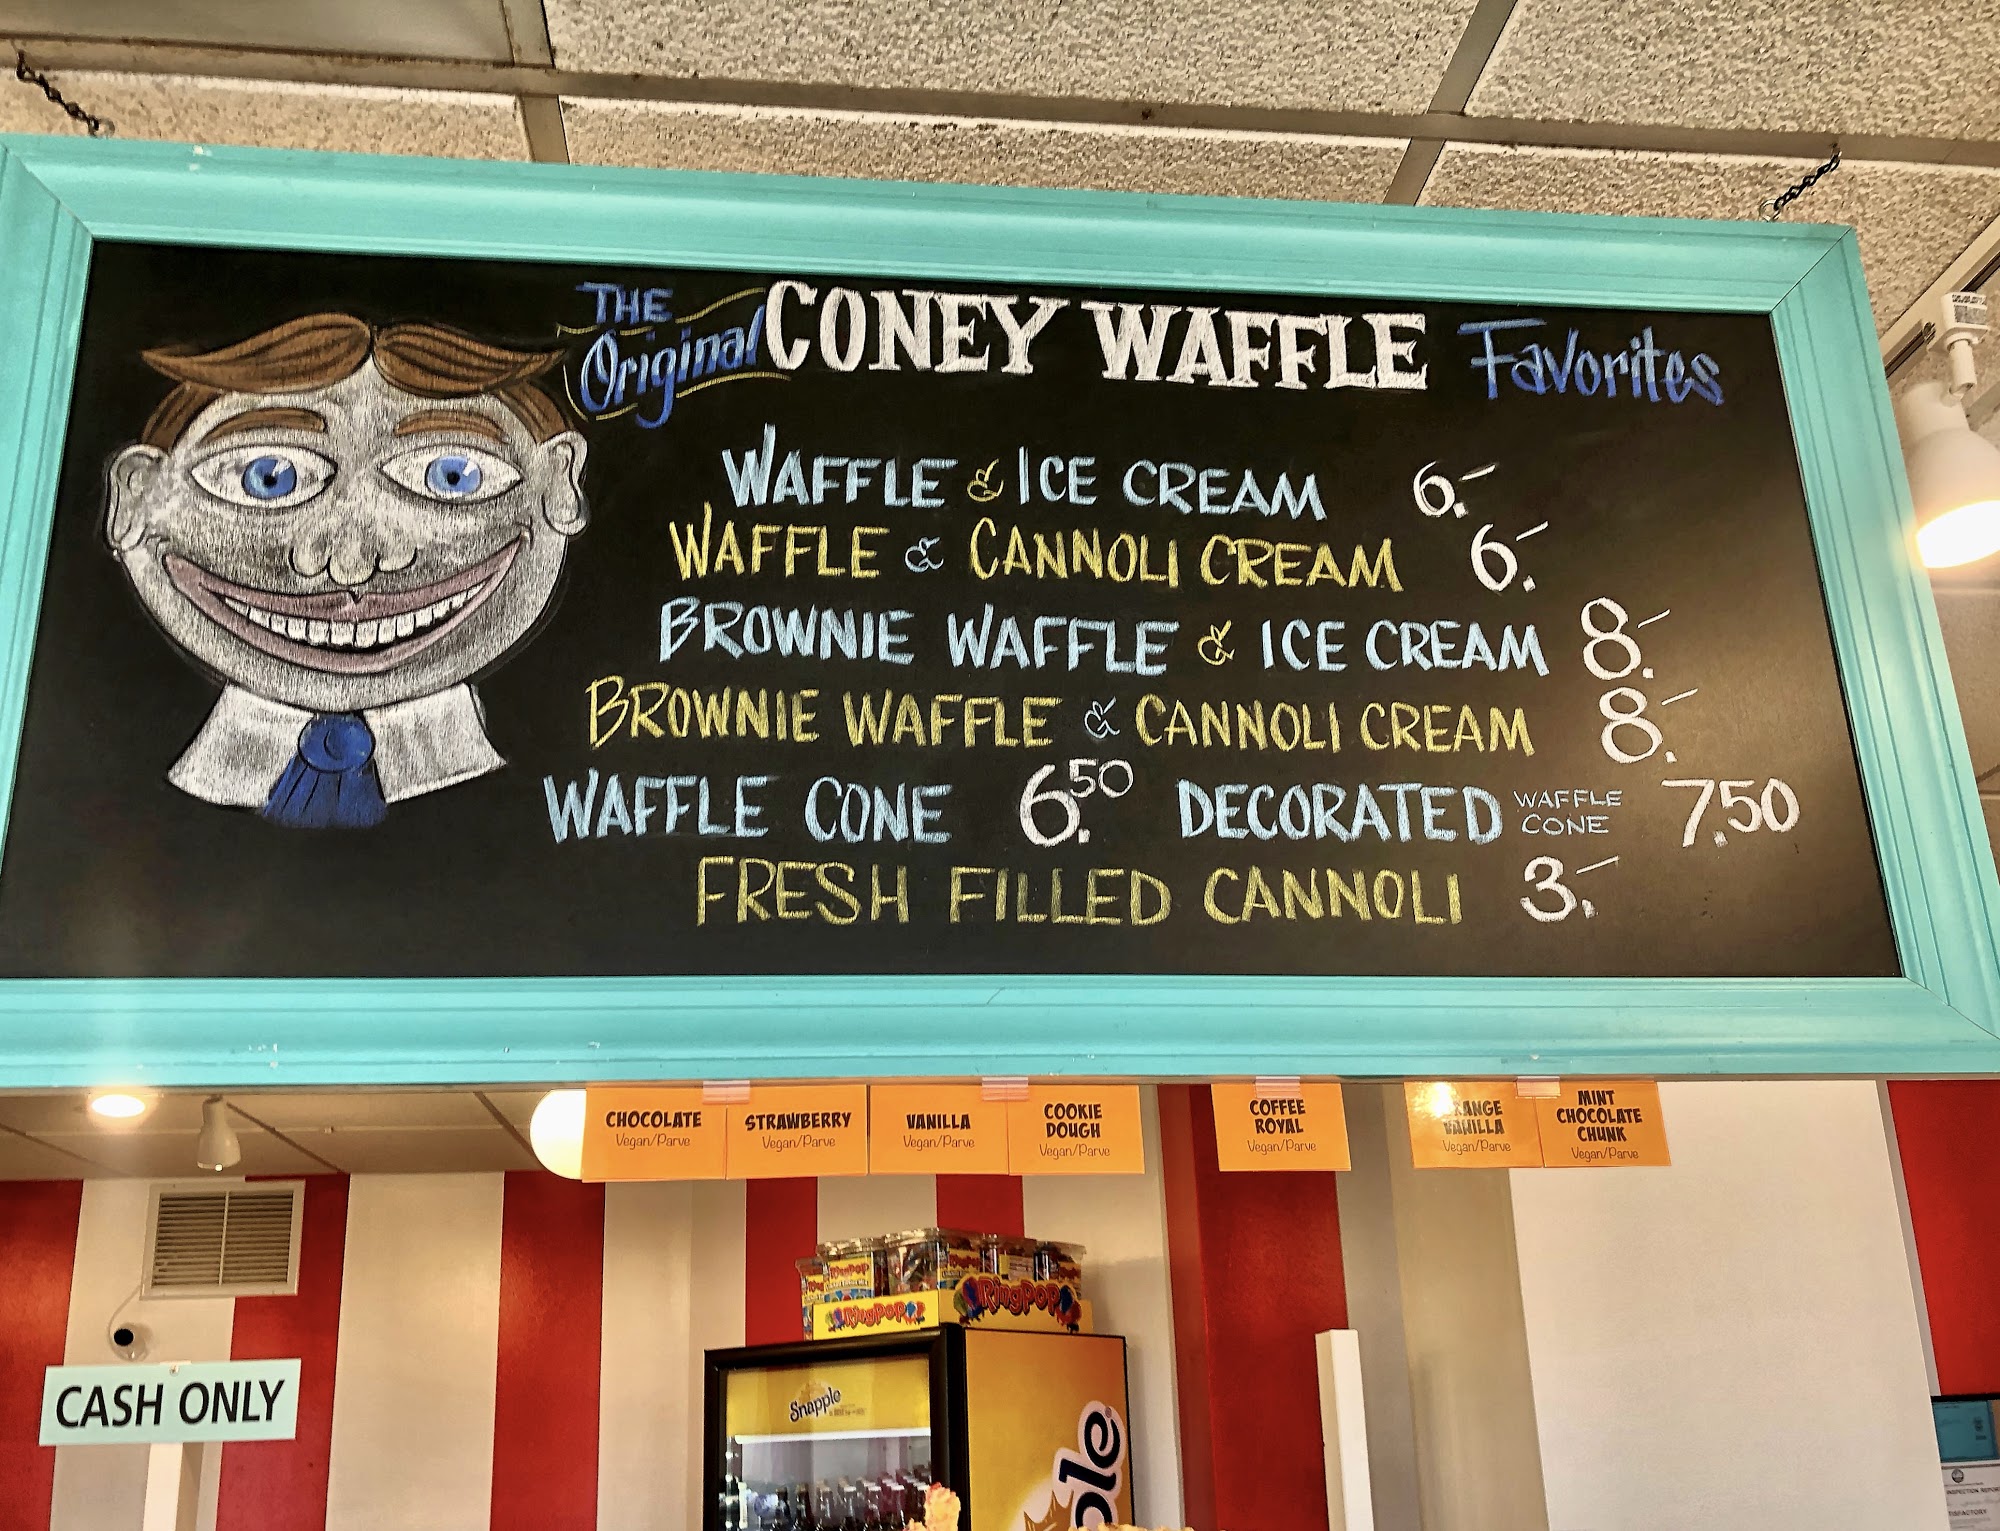 THE Original CONEY WAFFLE Favorites
WAFFLE & ICE CREAM 6.-
WAFFLE & CANNOLI CREAM 6.-
BROWNIE WAFFLE & ICE CREAM 8.-
BROWNIE WAFFLE & CANNOLI CREAM 8.-
WAFFLE CONE 6.50 DECORATED WAFFLE CONE 7.50
FRESH FILLED CANNOLI 3.-
CHOCOLATE
Vegan/Parve
STRAWBERRY
Vegan/Parve
VANILLA
Vegan/Parve
COOKIE
DOUGH
Vegan/Parve
COFFEE
ROYAL
Vegan/Parve
VANILLA
Vegan/Parve
MINT
CHOCOLATE
CHUNK
Vegan/Parve
RingPop
RingPop
RingPop
CASH ONLY
Snapple
INSPECTION REPORT